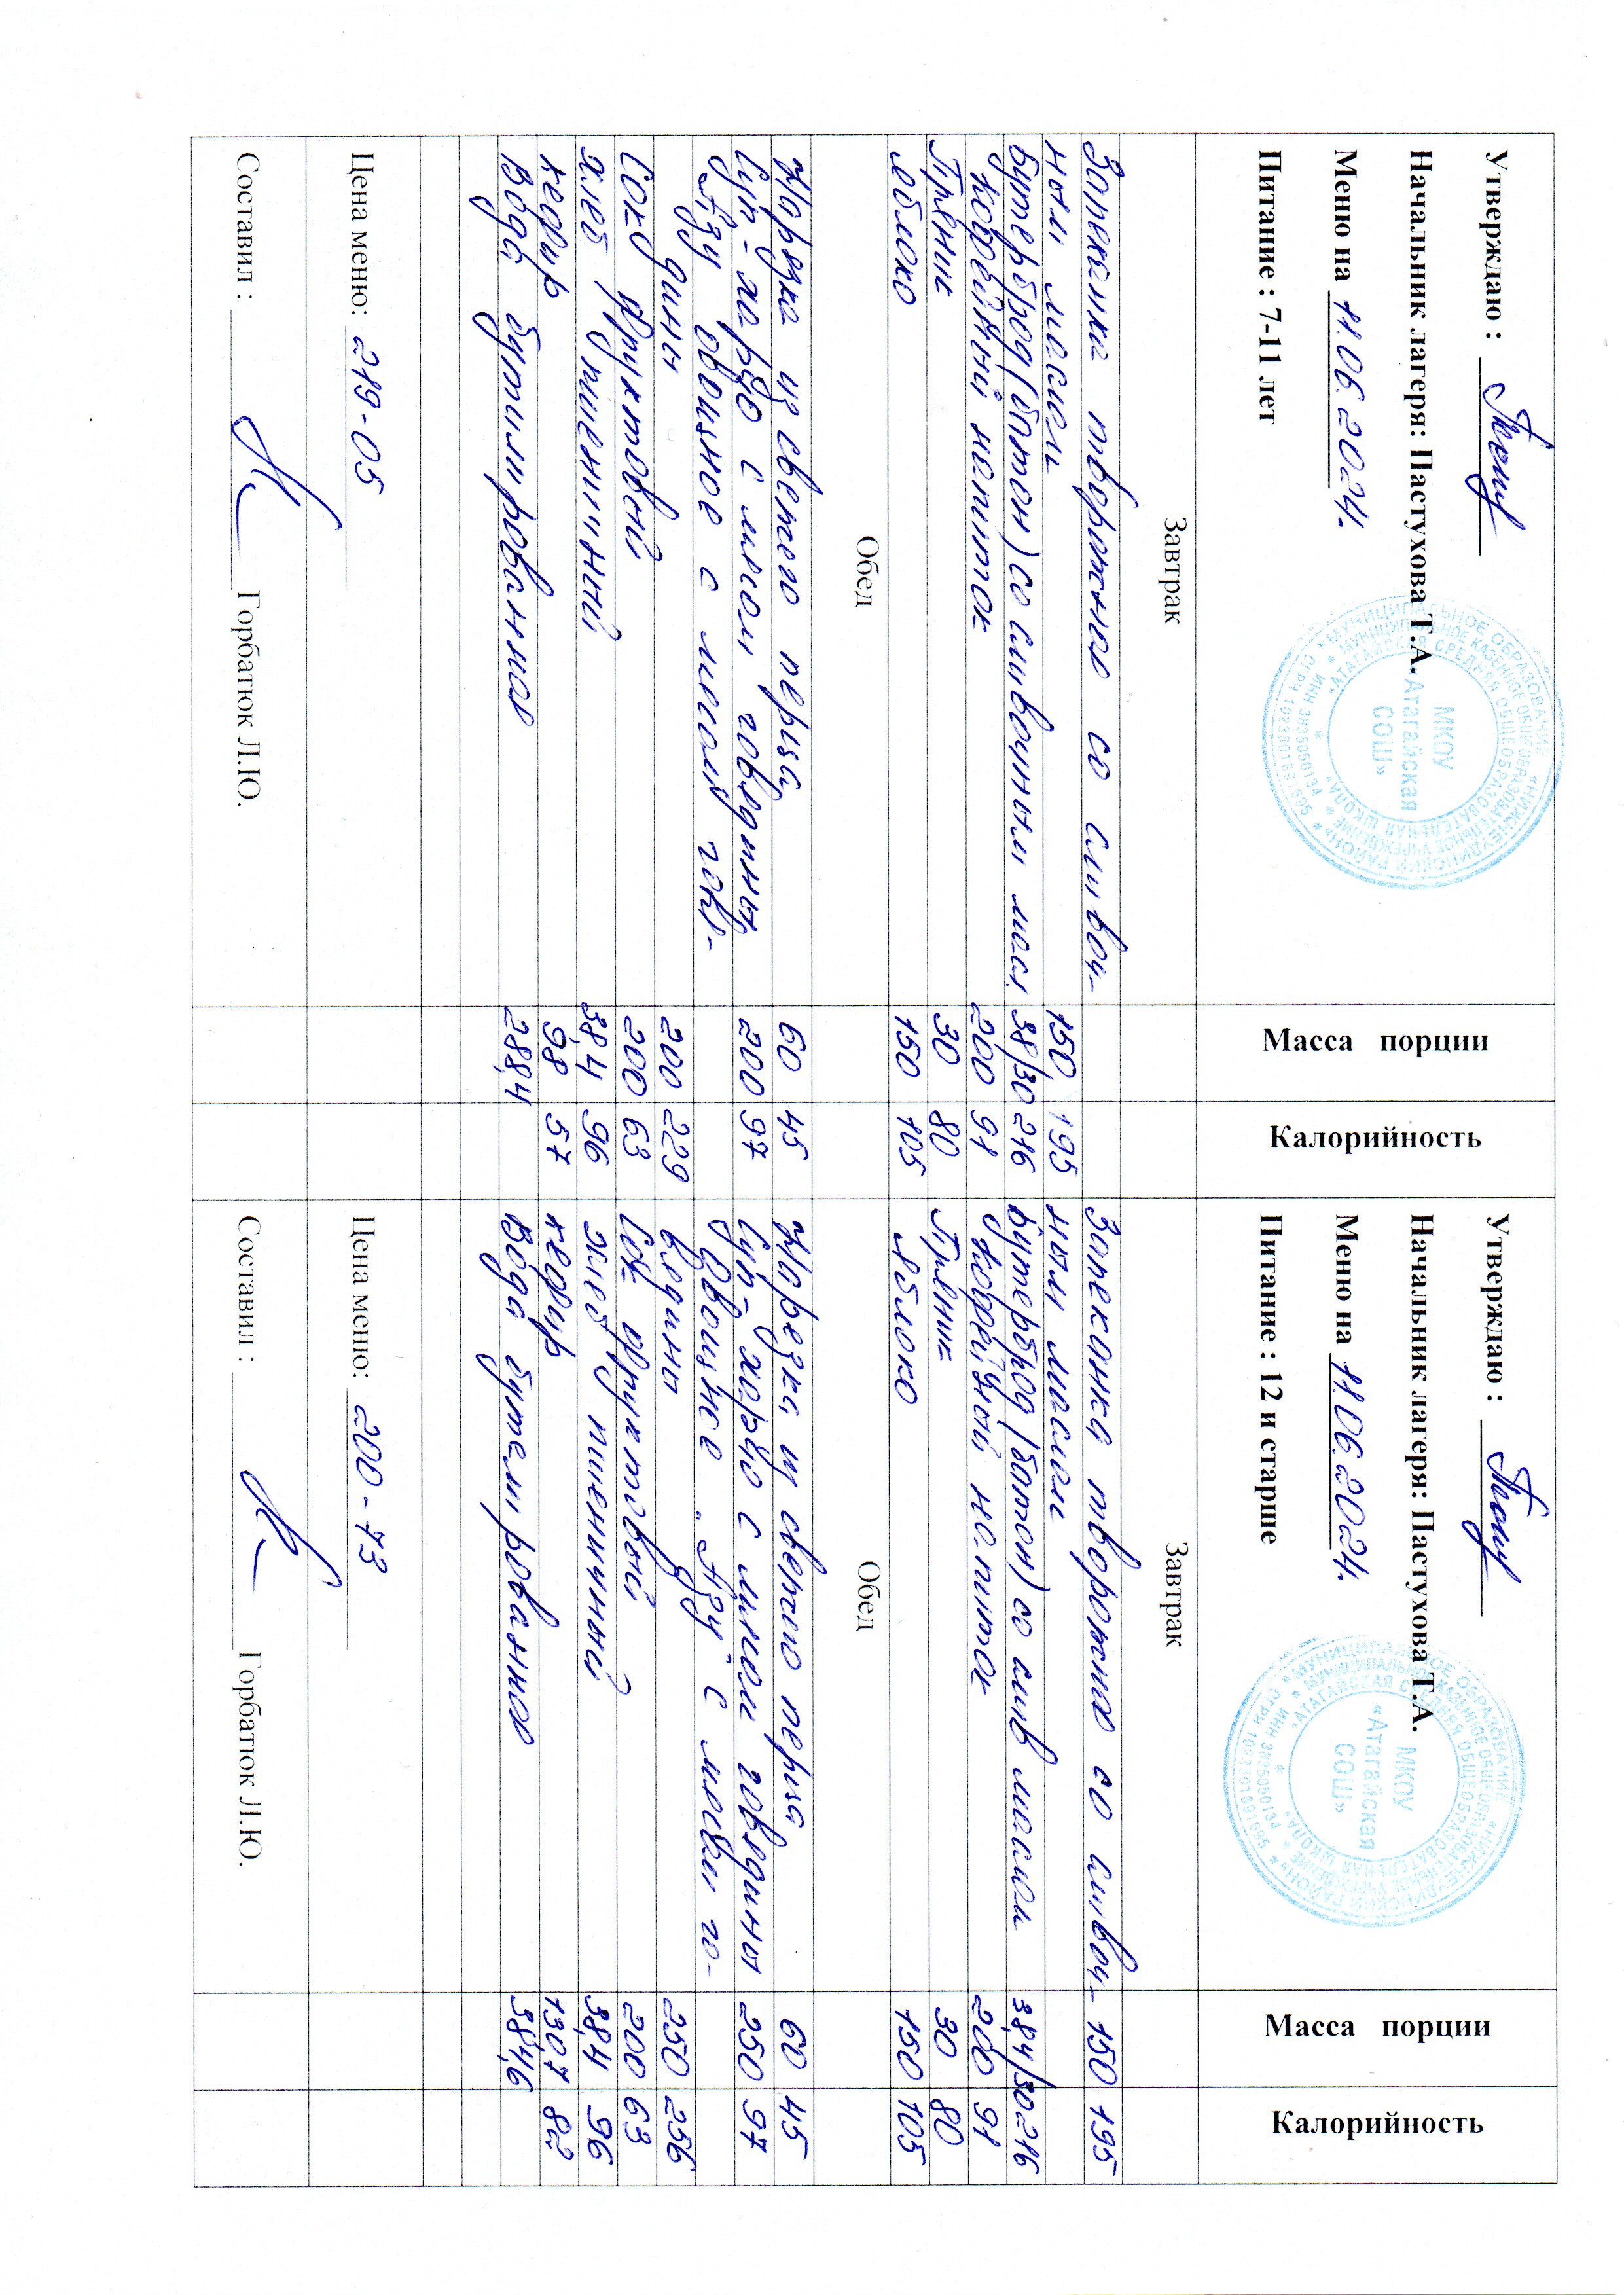 Утверждаю :
Начальник лагеря: Пастухова Т.А.
Меню на 11.06.2024.
Питание : 7-11 лет
Масса порции
Калорийность
МКОУ
«Атагайская
СОШ»
Завтрак
Запеканка творожная со сливоч-
ным маслом 150 195
Бутерброд (батон) со сливочным масл 38/30 216
Кофейный напиток 200 91
Пряник 30 80
Яблоко 150 105
Обед
Нарезка из свежего перца 60 45
Суп-харчо с мясом говядины 200 97
Азу овощное с мясом говя-
дины 200 229
Сок фруктовый 200 63
Хлеб пшеничный 38,4 96
Кефир 98 57
Вода бутилированная 288,4
Цена меню: 219-05
Составил : Горбатюк Л.Ю.
Утверждаю :
Начальник лагеря: Пастухова Т.А.
Меню на 11.06.2024.
Питание : 12 и старше
Масса порции
Калорийность
МКОУ
«Атагайская
СОШ»
Завтрак
Запеканка творожная со сливоч- 150 195
ным маслом
Бутерброд (батон) со слив маслом 38,4/30 216
Кофейный напиток 200 91
Пряник 30 80
Яблоко 150 105
Обед
Нарезка из свежего перца 60 45
Суп-харчо с мясом говядины 250 97
Овощное "Азу" с мясом го-
вядины 250 256
Сок фруктовый 200 63
Хлеб пшеничный 38,4 96
Кефир 130,7 82
Вода бутилированная 384,6
Цена меню: 200-73
Составил : Горбатюк Л.Ю.